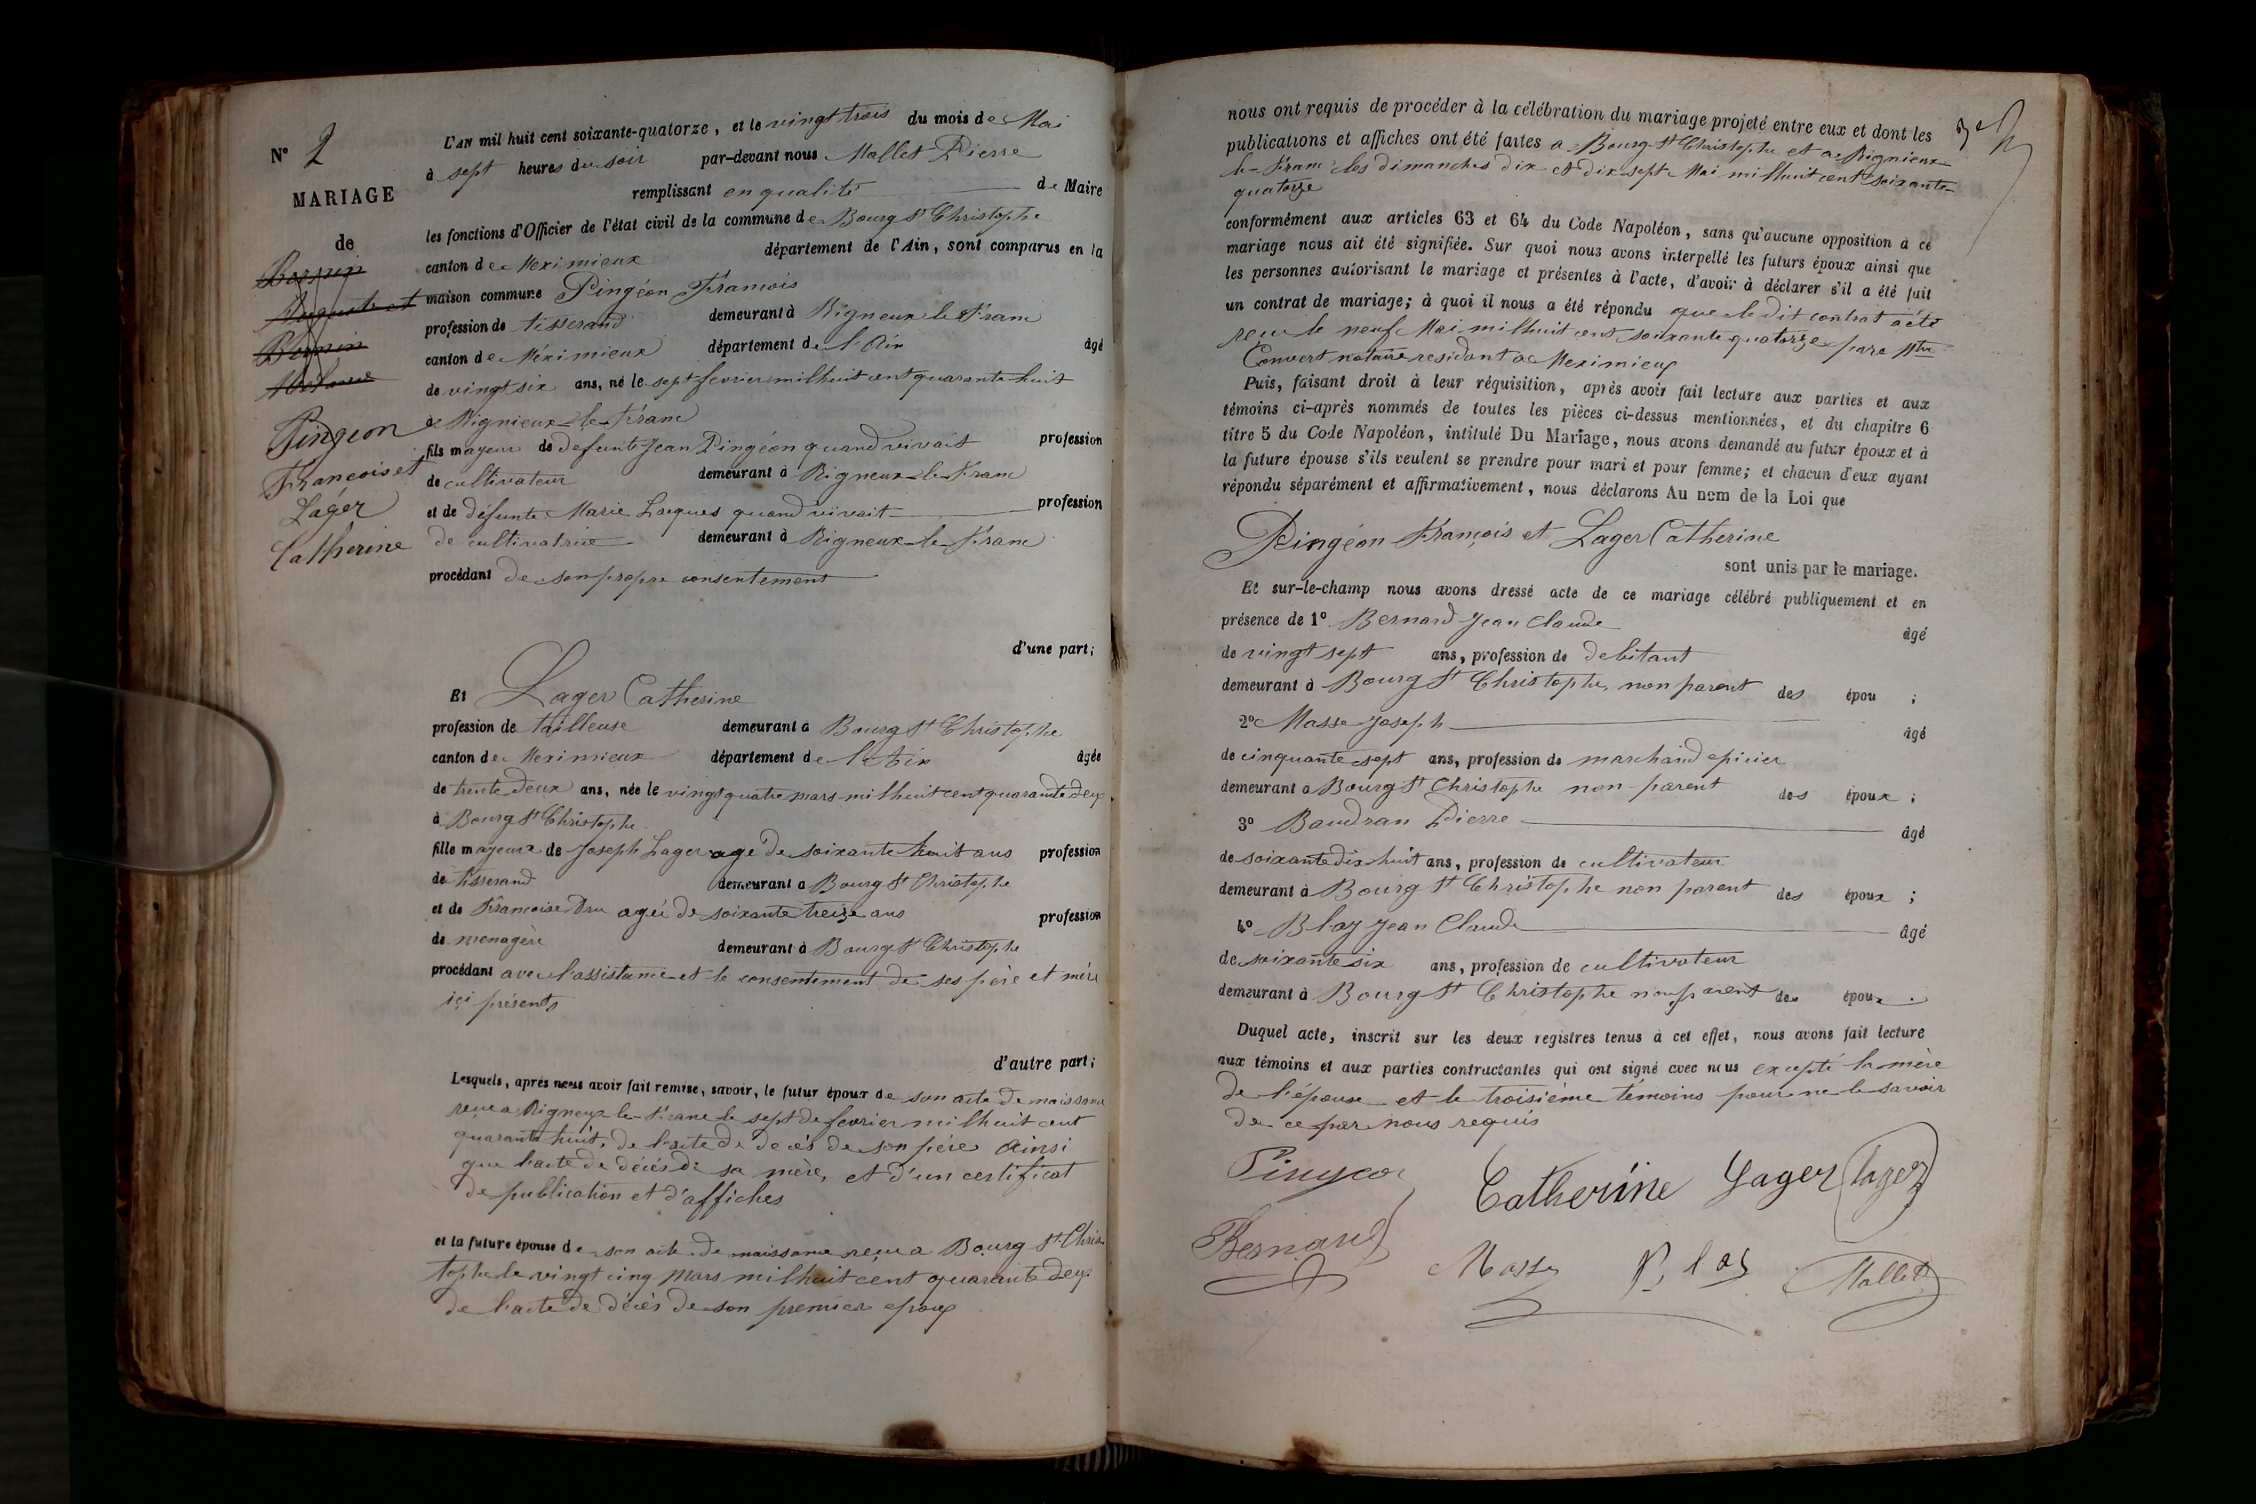 N° 2
MARIAGE
de
Pingeon
François et
Lager
Catherine
L'AN mil huit cent soixante-quatorze, et le vingt trois du mois de Mai
à sept heures du soir par-devant nous Mallet Pierre
remplissant en qualité de Maire
les fonctions d'Officier de l'état civil de la commune de Bourg St Christophe
canton de Meximieux département de l'Ain, sont comparus en la
maison commune Pingéon François
profession de tisserand demeurant à Rigneux le Franc
canton de Méximieux département de l'Ain âgé
de vingt six ans, né le sept fevrier mil huit cent quarante huit
à Rignieux-le-Franc
fils mayeur de defunt Jean Pingéon quand vivait profession
de cultivateur demeurant à Rigneux-le-Franc
et de défunte Marie Lacques quand vivait profession
de cultivatrice demeurant à Rigneux-le-Franc
procédant de son propre consentement
d'une part;
Et Lager Catherine
profession de tailleuse demeurant à Bourg St Christophe
canton de Meximieux département de l'Ain âgée
de trente deux ans, née le vingt quatre mars mil huit cent quarante deux
à Bourg St Christophe
fille mayeure de Joseph Lager age de soixante huit ans profession
de tisserand demeurant à Bourg St Christophe
et de Françoise Dru agée de soixante treize ans profession
de menagère demeurant à Bourg St Christophe
procédant avec l'assistance et le consentement de ses père et mère
içi présents
d'autre part;
Lesquels, après nous avoir fait remise, savoir, le futur époux de son acte de naissance
reçu a Rigneux le-Franc le sept de fevrier mil huit cent
quarante huit, de l'acte de décès de son père ainsi
que l'acte de décès de sa mère, et d'un certificat
de publication et d'affiches
et la future épouse de son acte de naissance reçu a Bourg St Chris-
tophe le vingt cinq Mars mil huit cent quarante deux
de l'acte de décès de son premier epoux
nous ont requis de procéder à la célébration du mariage projeté entre eux et dont les
publications et affiches ont été faites a Bourg St Christophe et a Rignieux
le-Franc les dimanches dix et dix sept Mai mil huit cent soixante-
quatorze
conformément aux articles 63 et 64 du Code Napoléon, sans qu'aucune opposition à ce
mariage nous ait été signifiée. Sur quoi nous avons interpellé les futurs époux ainsi que
les personnes autorisant le mariage et présentes à l'acte, d'avoir à déclarer s'il a été fait
un contrat de mariage; à quoi il nous a été répondu que le dit contrat a été
reçu le neuf Mai mil huit cent soixante quatorze par Mtre
Convert notaire residant a Meximieux
Puis, faisant droit à leur réquisition, après avoir fait lecture aux parties et aux
témoins ci-après nommés de toutes les pièces ci-dessus mentionnées, et du chapitre 6
titre 5 du Code Napoléon, intitulé Du Mariage, nous avons demandé au futur époux et à
la future épouse s'ils veulent se prendre pour mari et pour femme; et chacun d'eux ayant
répondu séparément et affirmativement, nous déclarons Au nom de la Loi que
Pingéon François et Lager Catherine
sont unis par le mariage.
Et sur-le-champ nous avons dressé acte de ce mariage célébré publiquement et en
présence de 1° Bernard Jean Claude âgé
de vingt sept ans, profession de debitant
demeurant à Bourg St Christophe, non parent des épou ;
2° Masse Joseph âgé
de cinquante sept ans, profession de marchand epicier
demeurant à Bourg St Christophe non parent des époux ;
3° Baudran Pierre âgé
de soixante dix huit ans, profession de cultivateur
demeurant à Bourg St Christophe non parent des époux ;
4° Blay Jean Claude âgé
de soixante six ans, profession de cultivateur
demeurant à Bourg St Christophe non parent des époux .
Duquel acte, inscrit sur les deux registres tenus à cet effet, nous avons fait lecture
aux témoins et aux parties contractantes qui ont signé avec nous excepté la mère
de l'épouse et le troisième témoins pour ne le savoir
de ce par nous requis
Pingeon Catherine Lager Lager
Bernard Masse Blay Mallet